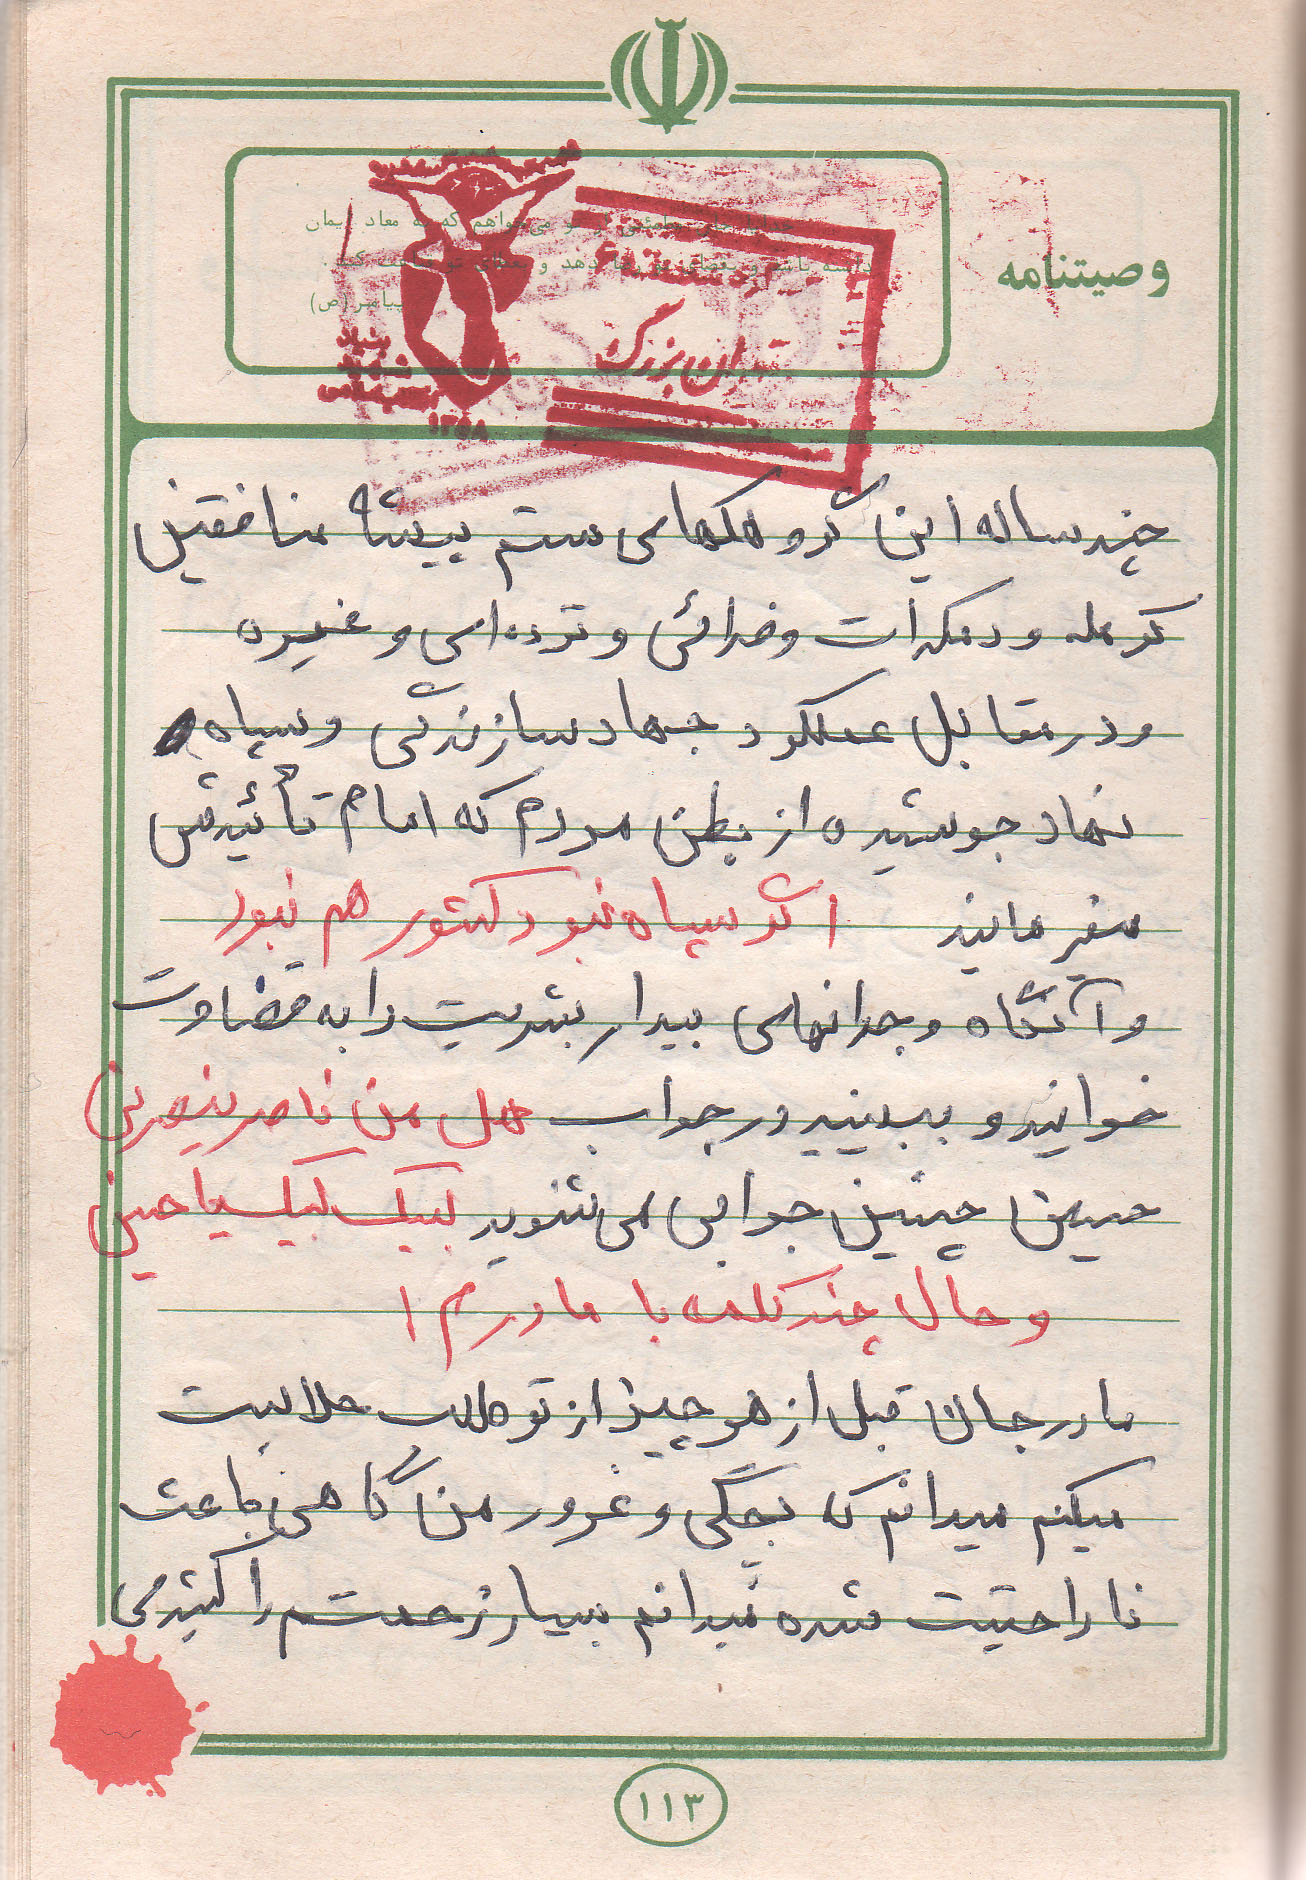 وصیتنامه
می‌خواهم که به معاد ایمان
داشته باشد و بقضای تو رضا دهد و بعطای تو قناعت کند.
پیامبر (ص)
تهران بزرگ
بنیاد
شهید
انقلاب اسلامی
۱۳۵۸
چند ساله این گروهکهای ستم پیشه منافقین
کومله و دمکرات و فدائی و توده‌ای و غیره
و در مقابل عملکرد جهاد سازندگی و سپاه
نهاد جوشیده از بطن مردم که امام تأئیدش
میفرمایند اگر سپاه نبود کشور هم نبود
و آنگاه وجدانهای بیدار بشریت را به قضاوت
خوانید و ببینید در جواب هل من ناصر ینصرنی
حسین چنین جوابی می‌شنوید لبیک لبیک یا حسین
و حال چند کلمه با مادرم!
مادر جان قبل از هر چیز از تو طلب حلالیت
میکنم میدانم که بچگی و غرور من گاهی باعث
ناراحتیت شده میدانم بسیار زحمتم را کشیدی
۱۱۳